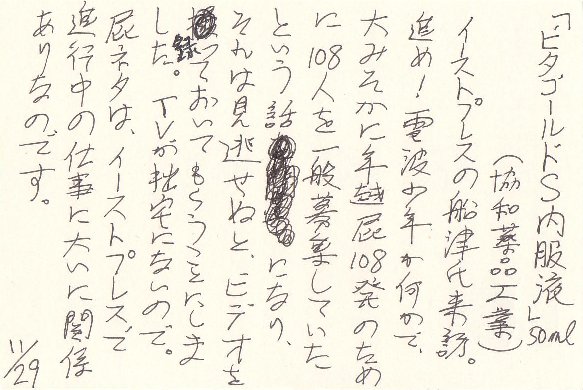 「ビタゴールドS内服液」50ml
（協和薬品工業）
イーストプレスの船津氏来訪。
進め！電波少年か何かで、
大みそかに年越屁108発のため
に108人を一般募集していた
という話になり、
それは見逃せぬと、ビデオを
録っておいてもらうことにしま
した。TVが拙宅にないので。
屁ネタは、イーストプレスで
進行中の仕事に大いに関係
ありなのです。
11/29